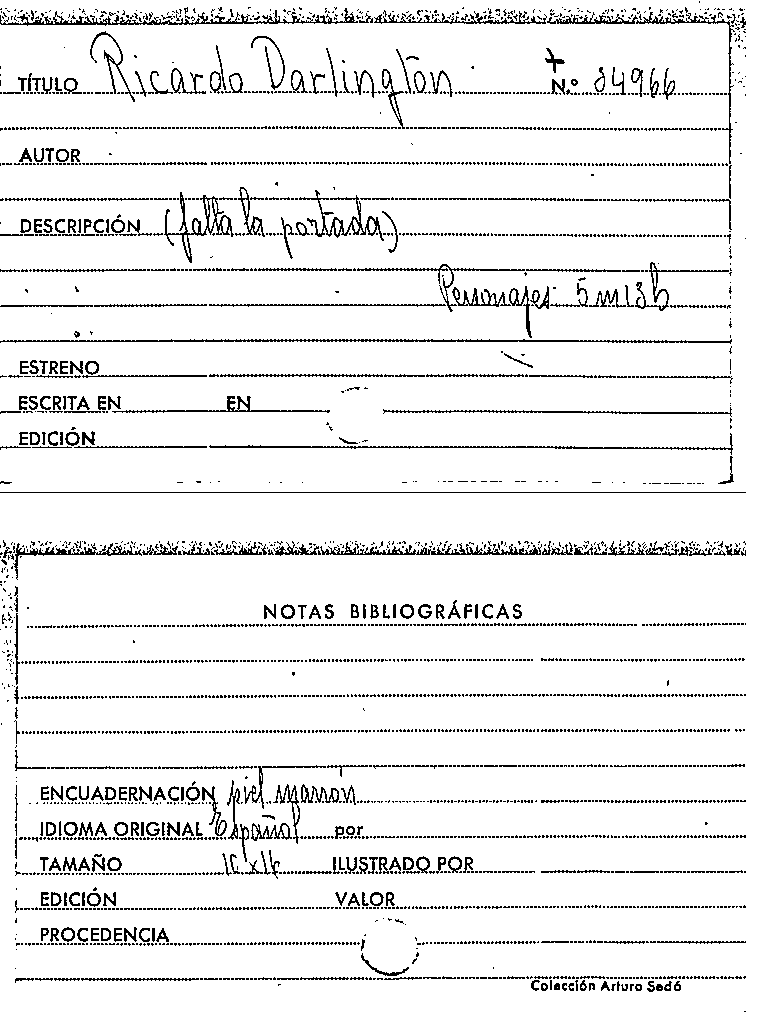 TÍTULO Ricardo Darlington N.º 84966
AUTOR
DESCRIPCIÓN (falta la portada)
Personajes 5 m 13 h
ESTRENO
ESCRITA EN EN
EDICIÓN
NOTAS BIBLIOGRÁFICAS
ENCUADERNACIÓN piel marrón
IDIOMA ORIGINAL Español por
TAMAÑO ILUSTRADO POR
EDICIÓN VALOR
PROCEDENCIA
Colección Arturo Sedó